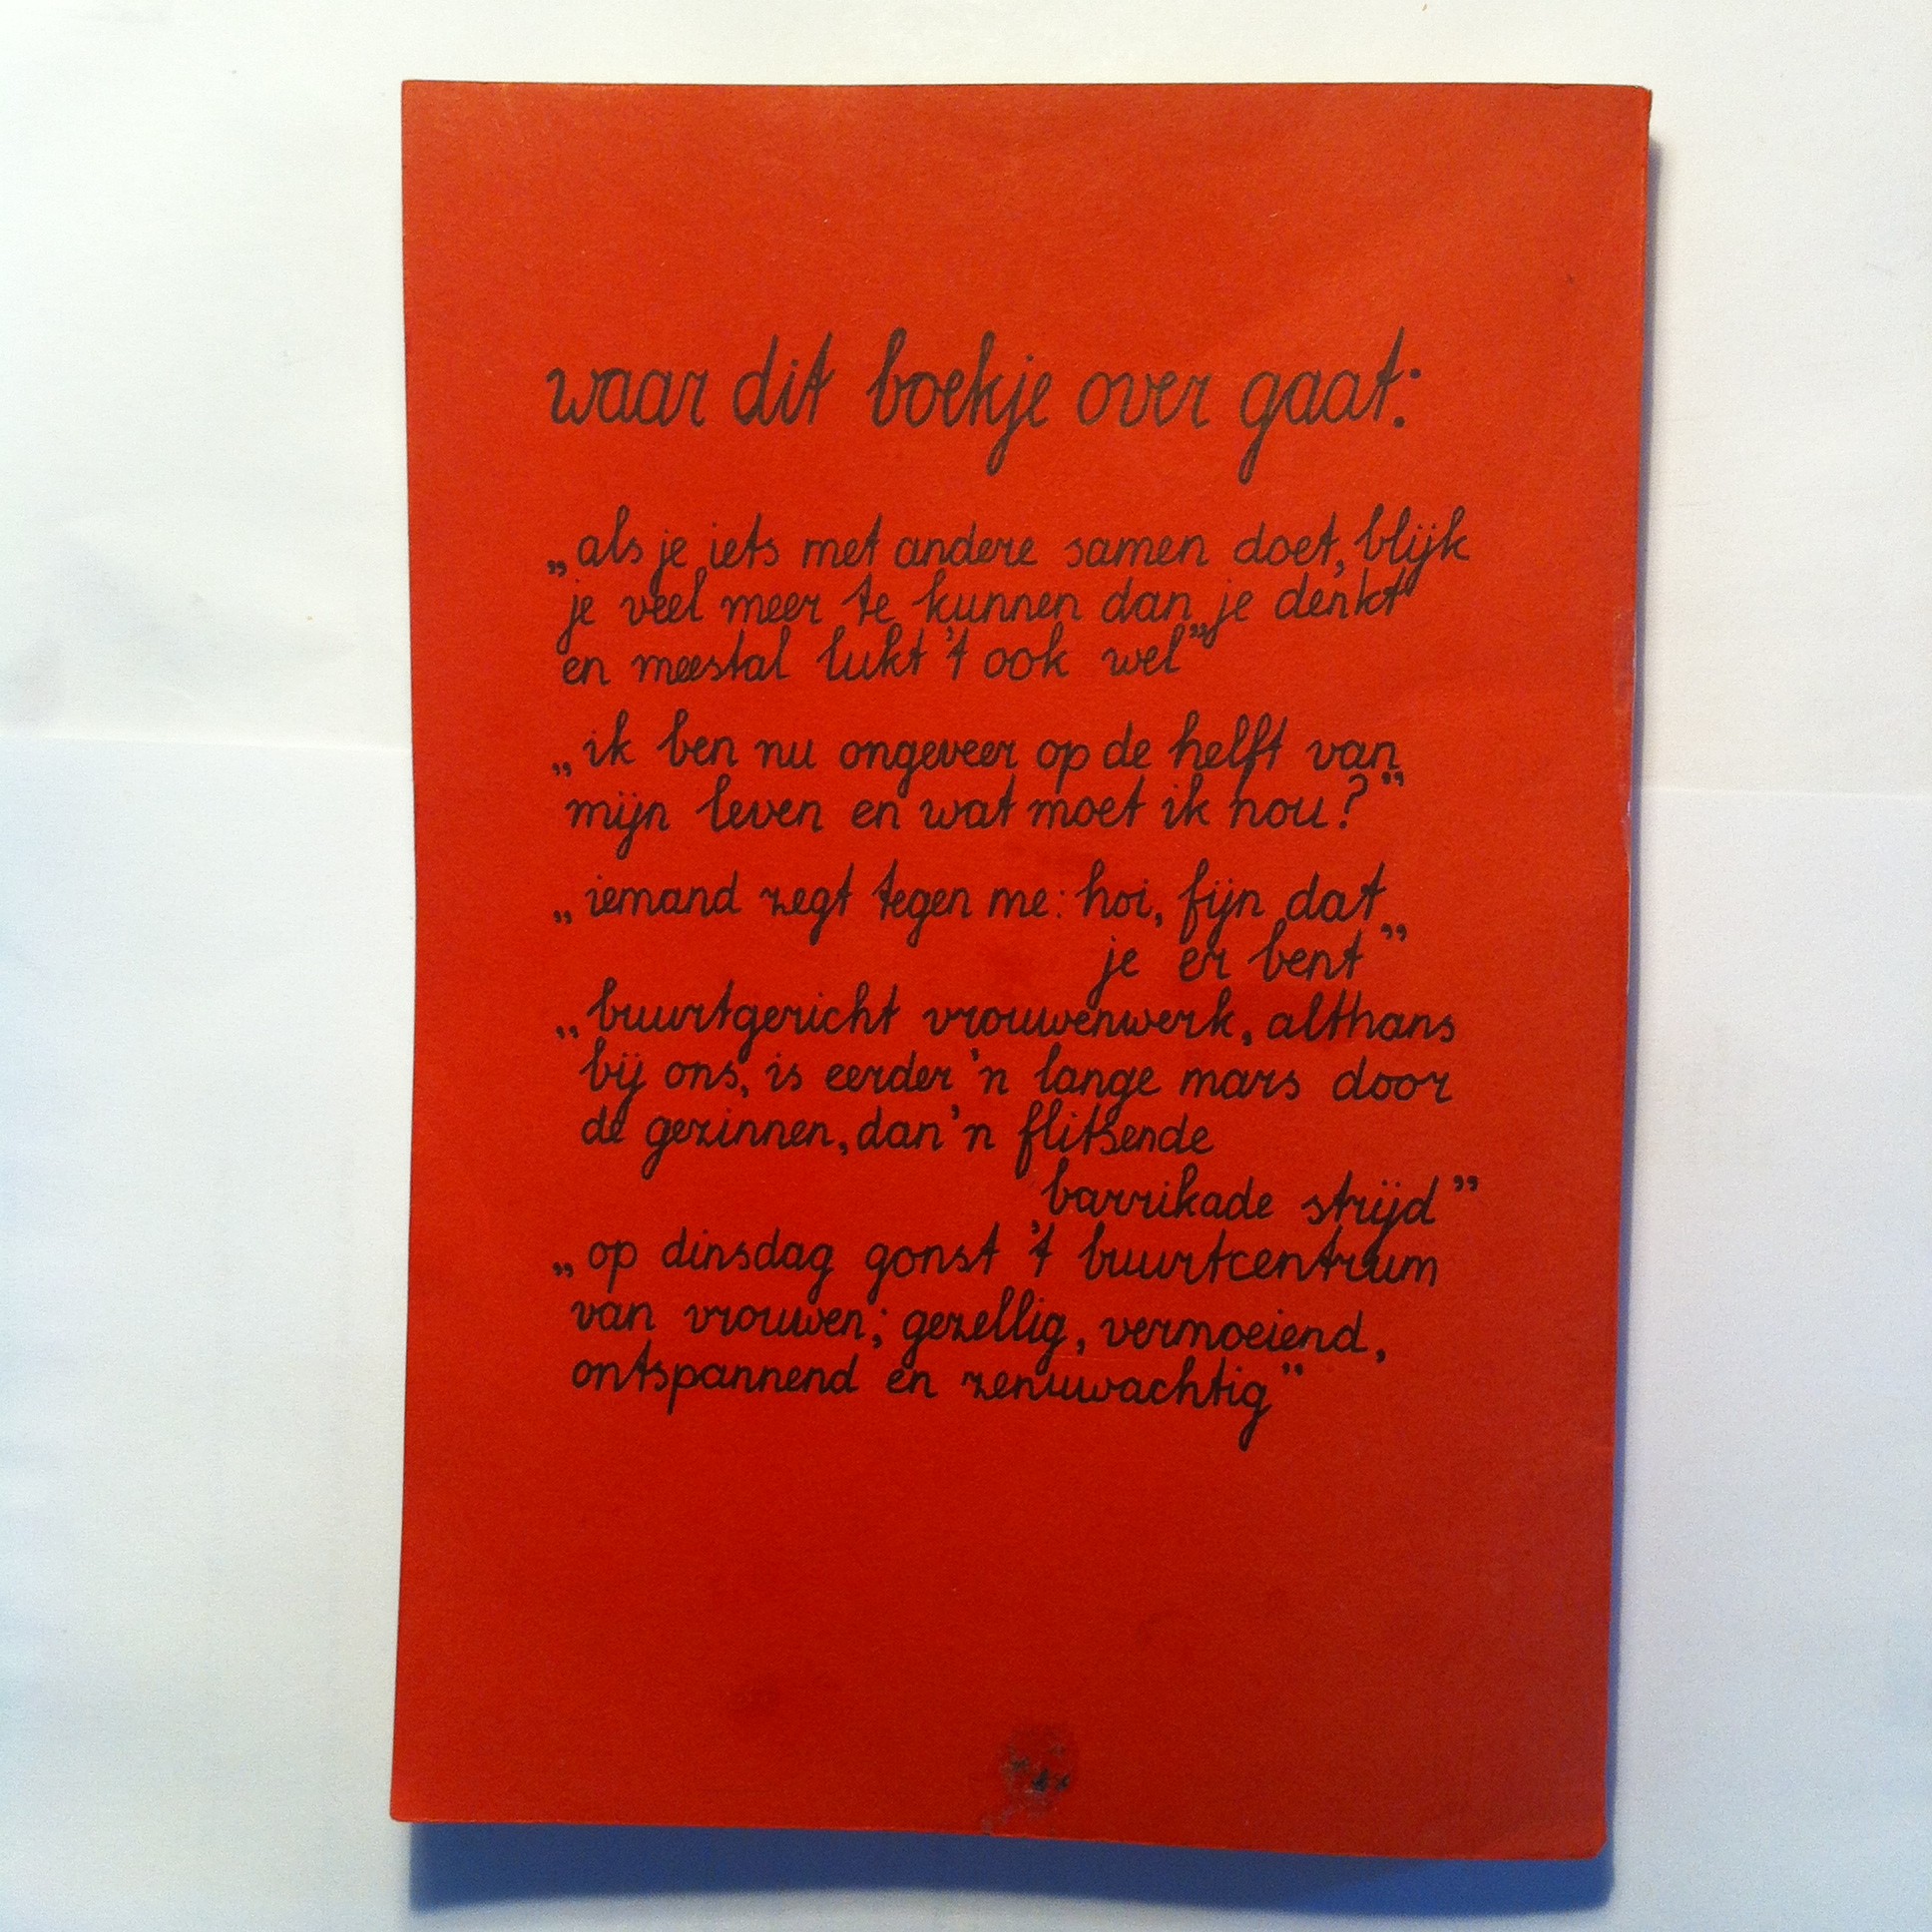 waar dit boekje over gaat:
„als je iets met andere samen doet, blijk
je veel meer te kunnen dan je denkt
en meestal lukt 't ook wel”
„ik ben nu ongeveer op de helft van
mijn leven en wat moet ik nou?”
„iemand zegt tegen me: hoi, fijn dat
je er bent”
„buurtgericht vrouwenwerk, althans
bij ons, is eerder 'n lange mars door
de gezinnen, dan 'n flitsende
barrikade strijd”
„op dinsdag gonst 't buurtcentrum
van vrouwen; gezellig, vermoeiend,
ontspannend en zenuwachtig”